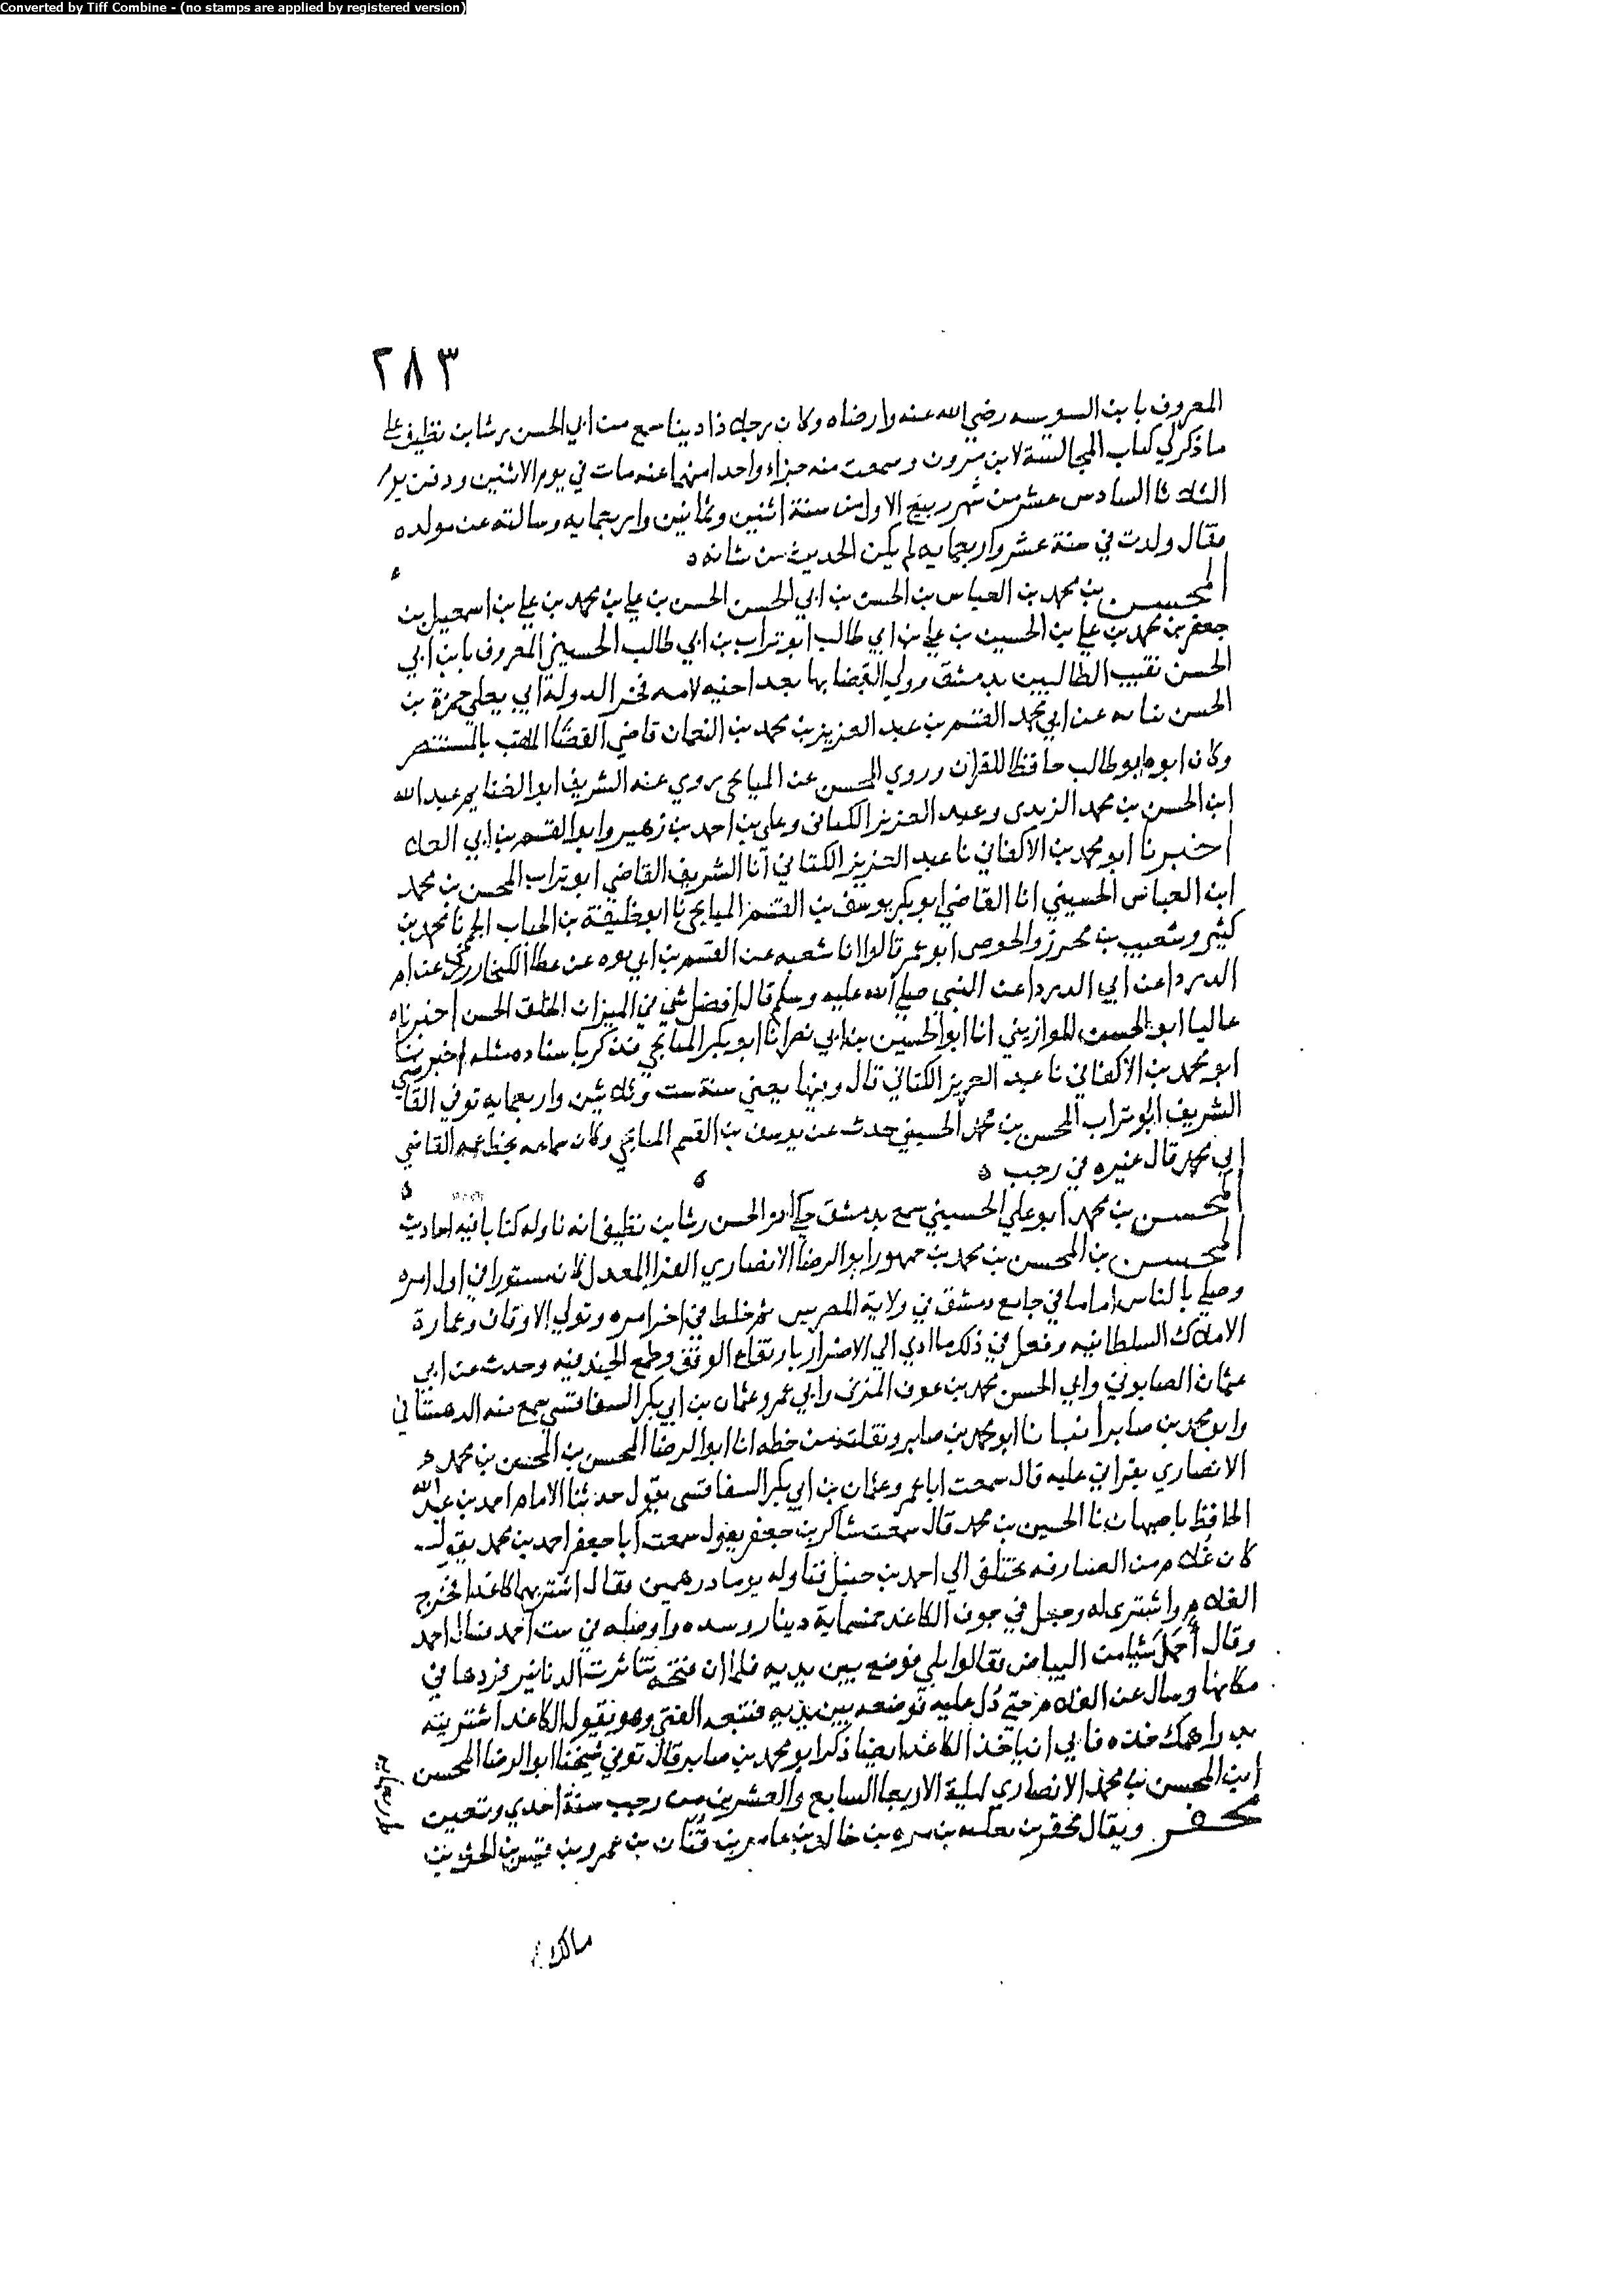 Converted by Tiff Combine - (no stamps are applied by registered version)
٢٨٣
المعروف بابن السويسه رضي الله عنه وارضاه وكان رجلا ذا دينا سمع من ابي الحسن رشا بن نظيف على
ما ذكر لي كتاب المجالسة لابن مروان وسمعت منه جزاء واحدا منها عنه مات في يوم الاثنين ودفن يوم
الثلاثا السادس عشر من شهر ربيع الاول من سنة اثنين وثمانين واربعمايه وسالته عن مولده
فقال ولدت في سنة عشر واربعمايه لم يكن الحديث من شانه
المحسن بن محمد بن العباس بن الحسن بن ابي الحسن الحسن بن علي بن محمد بن علي بن اسمعيل بن
جعفر بن محمد بن علي بن الحسين بن علي بن ابي طالب ابو تراب بن ابي طالب الحسيني المعروف بابن ابي
الحسن نقيب الطالبيين بدمشق وولي القضا بها بعد اخيه لامه فخر الدولة ابي يعلي حمزة بن
الحسن نيابه عن ابي محمد القسم بن عبد العزيز بن محمد بن النعمان قاضي القضاا الملقب بالمستنصر
وكان ابوه ابو طالب حافظا للقران وروي المحسن عن الميانجي روي عنه الشريف ابو الغنايم عبد الله
ابن الحسن بن محمد الزيدى وعبد العزيز الكتانى وعلي بن احمد بن زهير وابو القسم بن ابي العلا
اخبرنا ابو محمد بن الاكفاني نا عبد العزيز الكتاني انا الشريف القاضي ابو تراب المحسن بن محمد
ابن العباس الحسيني انا القاضي ابو بكر يوسف بن القسم الميانجي نا ابو خليفة بن الحباب الجمحي نا محمد بن
كثير وشعيب بن محرز والحوضي ابو عمر قالوا انا شعبه عن القسم بن ابي بزه عن عطا الكيخاراني عن ام
الدردا عن ابي الدردا عن النبي صلي الله عليه وسلم قال افضل شي في الميزان الخلق الحسن اخبرناه
عاليا ابو الحسن الموازيني انا ابو الحسين بن ابي نصر انا ابو بكر الميانجي فذكر باسناده مثله اخبرنا
ابو محمد بن الاكفاني نا عبد العزيز الكتاني قال وفيها يعني سنة ست وثلاثين واربعمايه توفي القاضي
الشريف ابو تراب المحسن بن محمد الحسيني حدث عن يوسف بن القسم الميانجي وكان سماعه بخط عمه القاضي
ابي محمد قال غيره في رجب
المحسن بن محمد ابو علي الحسيني سمع بدمشق حكي ابو الحسن رشا بن نظيف انه ناوله كتابا فيه احاديث
المحسن بن المحسن بن محمد بن جمهور ابو الرضا الانصاري الفرا المعدل كان مستورا في اول امره
وصلي بالناس اماما في جامع دمشق في ولاية المصريين ثم خلط في اخر امره وتولي الاوقاف وعمارة
الاملاك السلطانيه وفعل في ذلك ما ادي الي الاضرار بارتفاع الوقف وطمع الجند فيه وحدث عن ابي
عثمان الصابوني وابي الحسن محمد بن عوف المزنى وابي عمرو عثمان بن ابي بكر السفاقسي سمع منه الدهستاني
وابو محمد بن صابر انبانا ابو محمد بن صابر ونقلته من خطه انا ابو الرضا المحسن بن المحسن بن محمد
الانصاري بقراتي عليه قال سمعت ابا عمرو عثمان بن ابي بكر السفاقسى يقول حدثنا الامام احمد بن عبد الله
الحافظ باصبهان نا الحسين بن محمد قال سمعت شاكر بن جعفر يقول سمعت ابا جعفر احمد بن محمد يقول
كان غلام من الصيارفه يختلف الي احمد بن حنبل فناوله يوما درهمين فقال اشتر بهما كاغدا فخرج
الغلام واشترى له وجعل في جوف الكاغد خمسماية دينار وسده واوصله في بيت احمد فسال احمد
وقال أَحُمِلَ شيا من البياض فقالوا بلي فوضع بين يديه فلما ان فتحه تناثرت الدنانير فردها في
مكانها وسال عن الغلام حتي دُل عليه فوضعه بين يديه فتبعه الفتي وهو يقول الكاغد اشتريته
بدراهمك خذه فابي ان ياخذ الكاغد ايضا ذكر ابو محمد بن صابر قال توفي شيخنا ابو الرضا المحسن
ابن المحسن بن محمد الانصاري ليلة الاربعا السابع والعشرين من رجب سنة احدي وتسعين
واربعمايه
محفر ويقال محقر بن ثعلبه بن مره بن خالد بن عامر بن قنان بن عمرو بن قيس بن الحرث بن
مالك